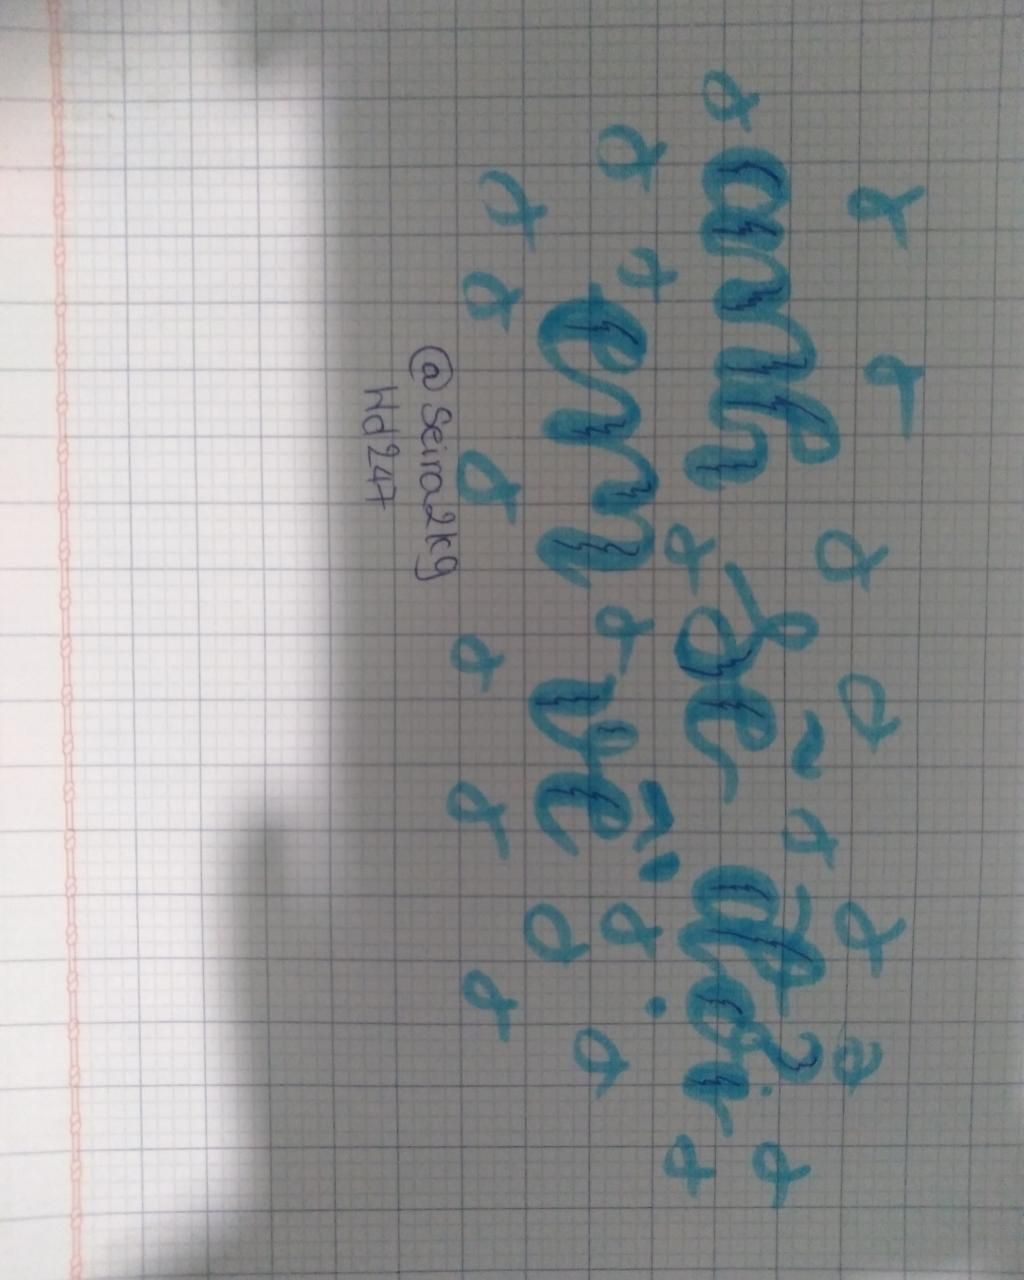 anh sẽ đợi
em về
@Seira2kg
Hd247